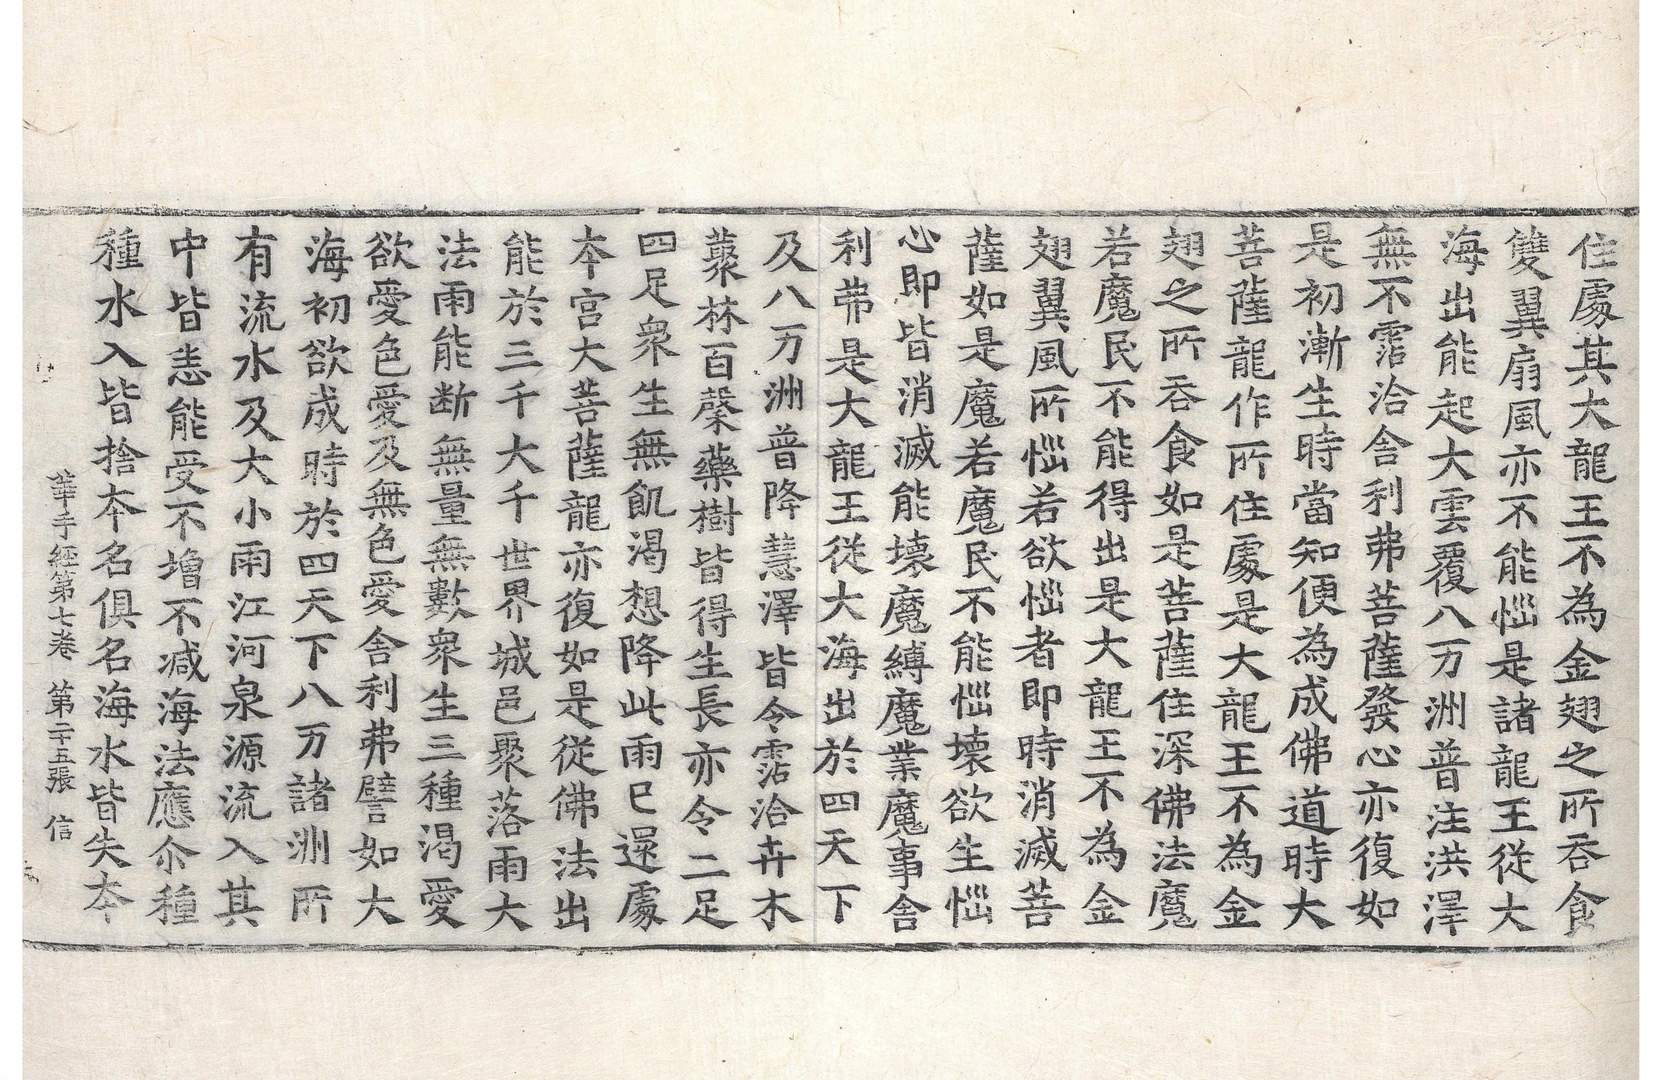 住處其大龍王不為金翅之所吞食
雙翼扇風亦不能惱是諸龍王從大
海出能起大雲覆八万洲普注洪澤
無不霑洽舍利弗菩薩發心亦復如
是初漸生時當知便為成佛道時大
菩薩龍作所住處是大龍王不為金
翅之所吞食如是菩薩住深佛法魔
若魔民不能得出是大龍王不為金
翅翼風所惱若欲惱者即時消滅菩
薩如是魔若魔民不能惱壞欲生惱
心即皆消滅能壞魔縛魔業魔事舍
利弗是大龍王從大海出於四天下
及八万洲普降慧澤皆令霑洽卉木
藂林百藥樹皆得生長亦令二足
四足衆生無飢渴想降此雨已還處
本宮大菩薩龍亦復如是從佛法出
能於三千大千世界城邑聚落雨大
法雨能断無量無數衆生三種渴愛
欲愛色愛及無色愛舍利弗譬如大
海初欲成時於四天下八万諸洲所
有流水及大小雨江河泉源流入其
中皆悉能受不增不減海法應尒種
種水入皆捨本名俱名海水皆失本
華手經第七卷 第二十五張 信